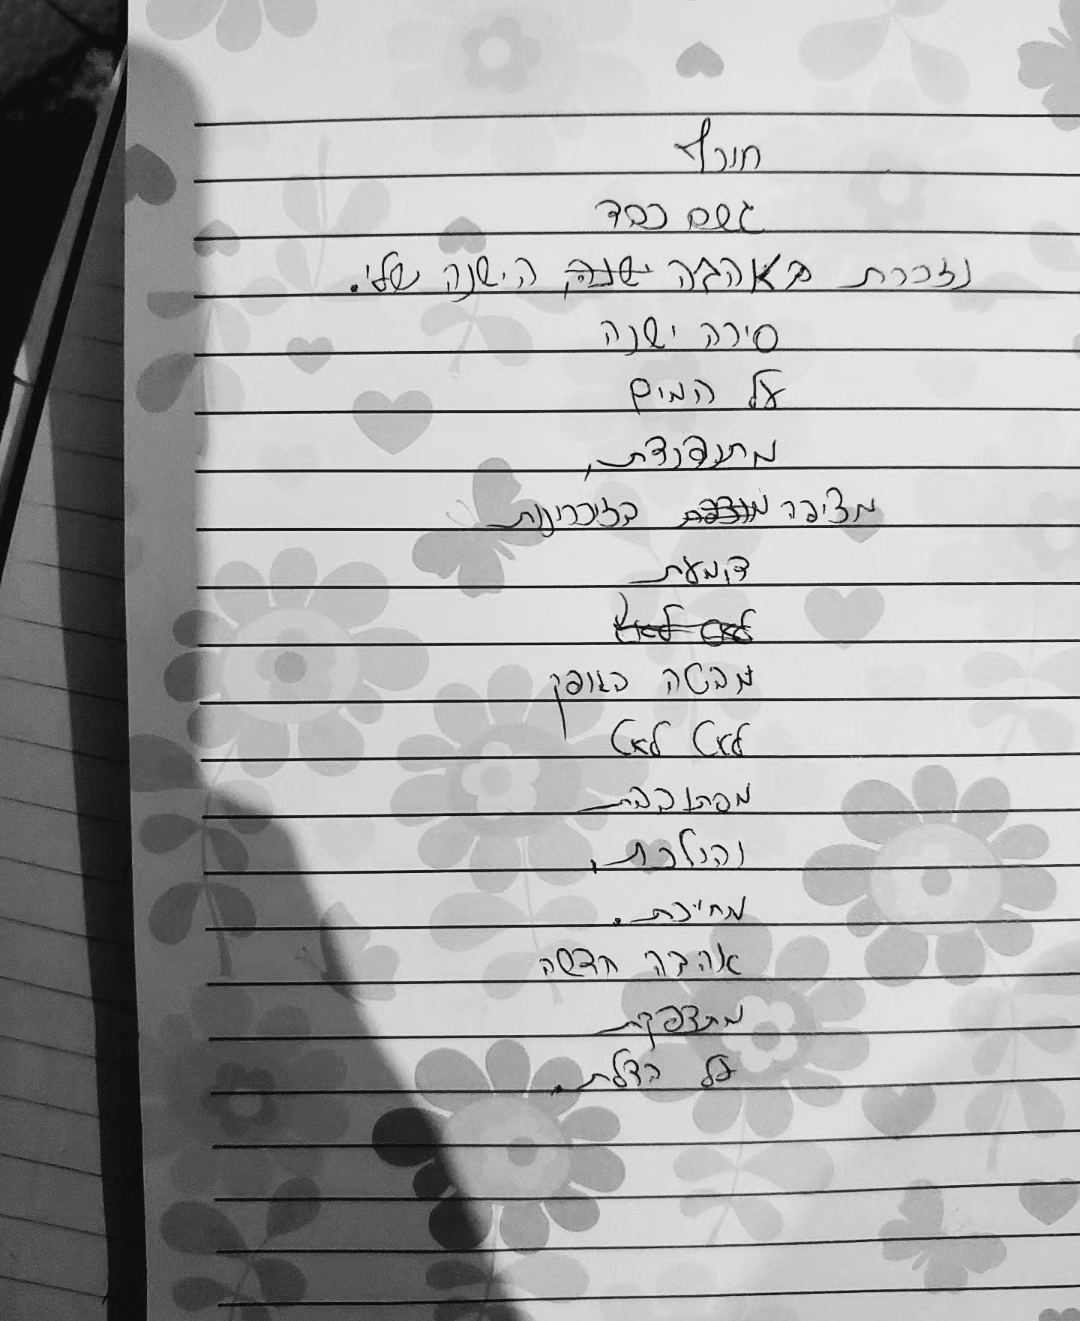 חורף
גשם כבד
נזכרת באהבה ישנה הישנה שלי.
סירה ישנה
על המים
מתנדנדת,
מציפה בזיכרונות
דומעת
לאט לאט
מביטה באופק
לאט לאט
מפתובבת
והולכת,
מחייכת.
אהבה חדשה
מתדפקת
על הדלת.